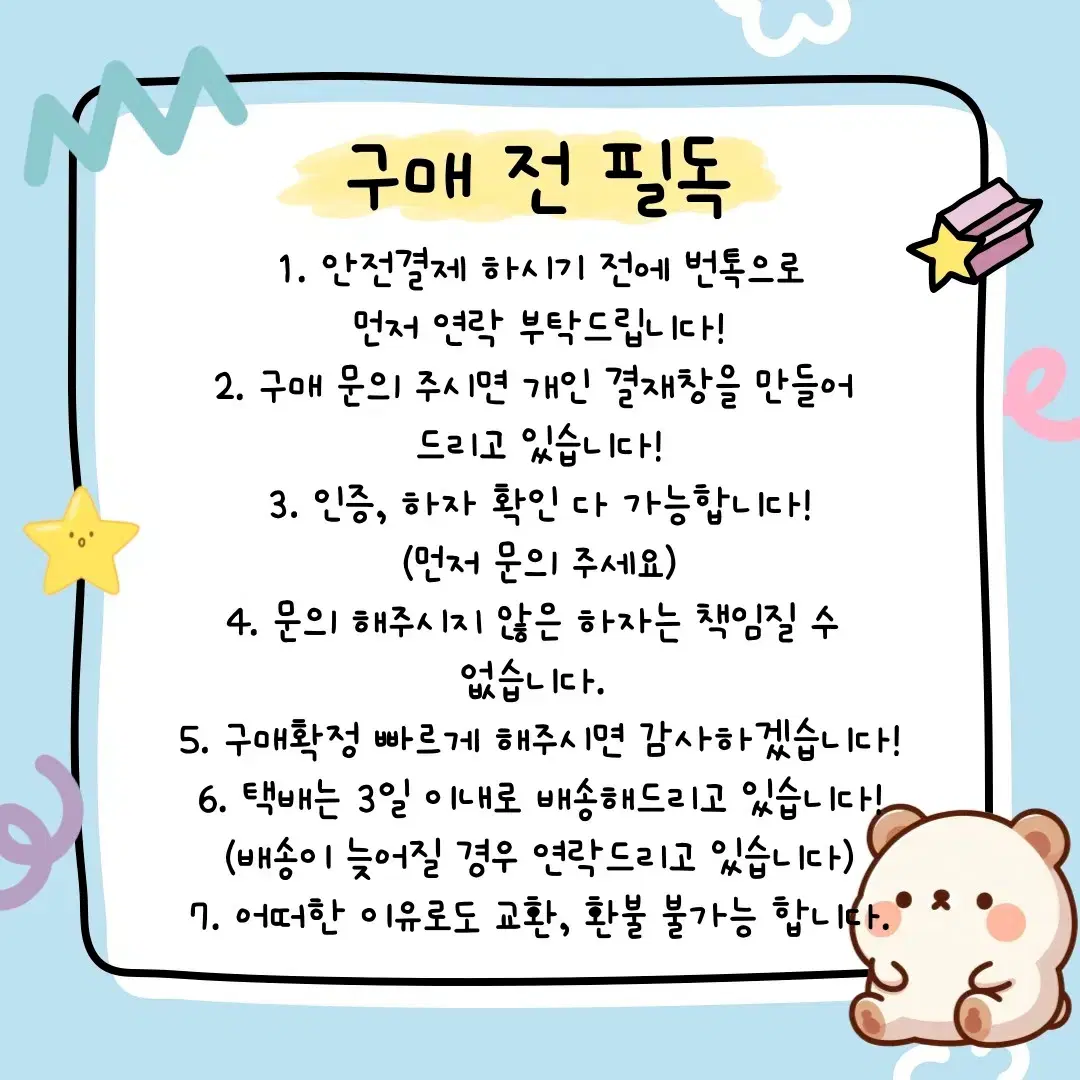 구매 전 필독
1. 안전결제 하시기 전에 번톡으로
먼저 연락 부탁드립니다!
2. 구매 문의 주시면 개인 결재창을 만들어
드리고 있습니다!
3. 인증, 하자 확인 다 가능합니다!
(먼저 문의 주세요)
4. 문의 해주시지 않은 하자는 책임질 수
없습니다.
5. 구매확정 빠르게 해주시면 감사하겠습니다!
6. 택배는 3일 이내로 배송해드리고 있습니다!
(배송이 늦어질 경우 연락드리고 있습니다)
7. 어떠한 이유로도 교환, 환불 불가능 합니다.